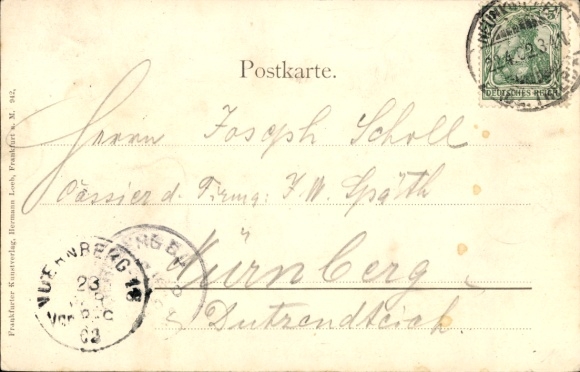 Postkarte.
DEUTSCHES REICH
Herrn Joseph Scholl
Cassier d. Firma: J. W. Späth
Nürnberg
Dutzendteich.
NUERNBERG
23
02
Frankfurter Kunstverlag, Hermann Loeb, Frankfurt a. M. 942.